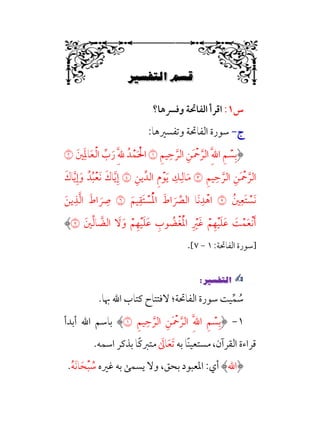 قسم التفسير
س١: اقرأ الفاتحة وفسرها؟
ج- سورة الفاتحة وتفسيرها:
﴿بِسْمِ ٱللَّهِ ٱلرَّحْمَٰنِ ٱلرَّحِيمِ ۝١ ٱلْحَمْدُ لِلَّهِ رَبِّ ٱلْعَالَمِينَ ۝٢
ٱلرَّحْمَٰنِ ٱلرَّحِيمِ ۝٣ مَالِكِ يَوْمِ ٱلدِّينِ ۝٤ إِيَّاكَ نَعْبُدُ وَإِيَّاكَ
نَسْتَعِينُ ۝٥ ٱهْدِنَا ٱلصِّرَاطَ ٱلْمُسْتَقِيمَ ۝٦ صِرَاطَ ٱلَّذِينَ
أَنْعَمْتَ عَلَيْهِمْ غَيْرِ ٱلْمَغْضُوبِ عَلَيْهِمْ وَلَا ٱلضَّالِّينَ ۝٧﴾
[سورة الفاتحة: ١ - ٧].
التفسير:
سُمِّيت سورة الفاتحة؛ لافتتاح كتاب الله بها.
١- ﴿بِسْمِ ٱللَّهِ ٱلرَّحْمَٰنِ ٱلرَّحِيمِ ۝١﴾ باسم الله أبدأ
قراءة القرآن، مستعينًا به تَعَالَىٰ متبركًا بذكر اسمه.
﴿الله﴾ أي: المعبود بحق، ولا يسمى به غيره سُبْحَانَهُ.